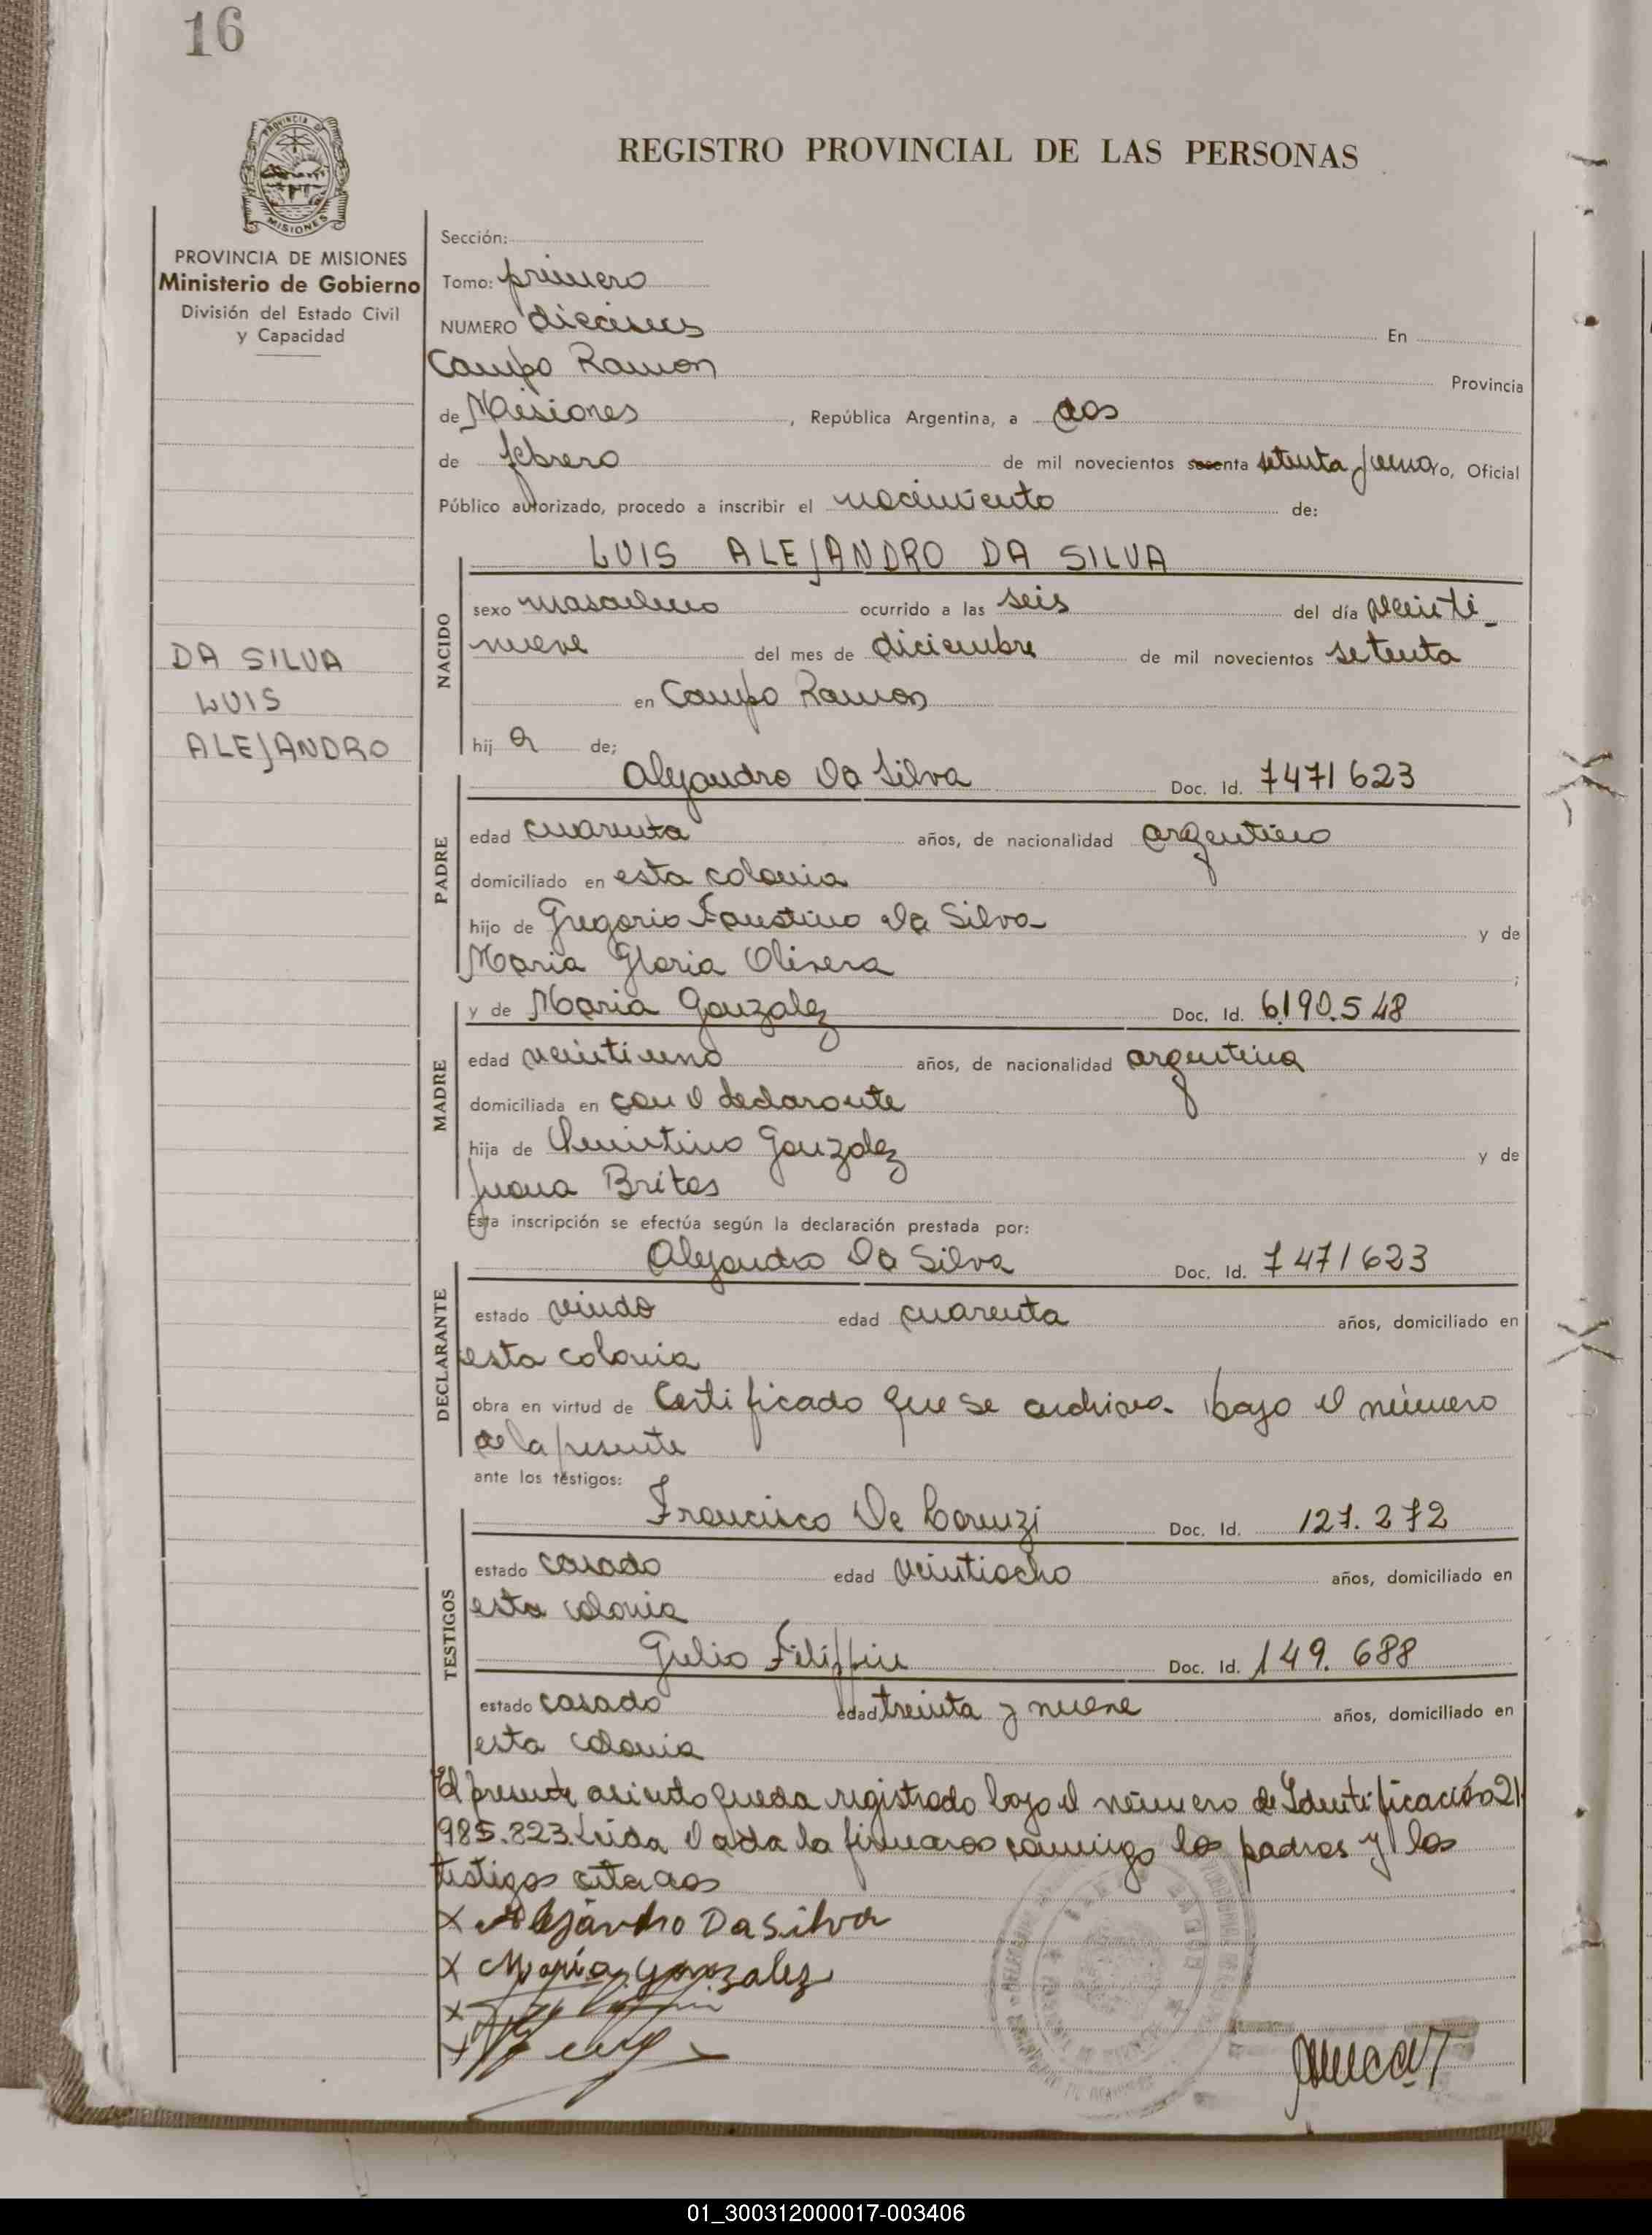 16
REGISTRO PROVINCIAL DE LAS PERSONAS
PROVINCIA DE MISIONES
Ministerio de Gobierno
División del Estado Civil
y Capacidad
DA SILVA
LUIS
ALEJANDRO
Sección:
Tomo: primero
NUMERO dieciseis En
Campo Ramon Provincia
de Misiones, República Argentina, a dos
de febrero de mil novecientos sesenta setenta y uno, Oficial
Público autorizado, procedo a inscribir el nacimiento de:
LUIS ALEJANDRO DA SILVA
NACIDO
sexo masculino ocurrido a las seis del día veinti-
nueve del mes de diciembre de mil novecientos setenta
en Campo Ramon
hij o de;
PADRE
Alejandro Da Silva Doc. Id. 7471623
edad cuarenta años, de nacionalidad argentino
domiciliado en esta colonia
hijo de Gregorio Faustino Da Silva y de
Maria Gloria Olivera ;
MADRE
y de Maria Gonzalez Doc. Id. 6.190.548
edad veintiuno años, de nacionalidad argentina
domiciliada en con el declarante
hija de Quintino Gonzalez y de
Juana Britos
Esta inscripción se efectúa según la declaración prestada por:
DECLARANTE
Alejandro Da Silva Doc. Id. 7471623
estado viudo edad cuarenta años, domiciliado en
esta colonia
obra en virtud de Certificado que se archiva bajo el número
de la presente
ante los testigos:
TESTIGOS
Francisco De Lorenzi Doc. Id. 127.272
estado casado edad veintiocho años, domiciliado en
esta colonia
Julio Filippin Doc. Id. 149.688
estado casado edad treinta y nueve años, domiciliado en
esta colonia
El presente asiento queda registrado bajo el número de Identificación 21
985.823. Leida el acta la firmaron conmigo los padres y los
testigos citados
X Alejandro Da Silva
X Maria Gonzalez
X
X
01_300312000017-003406